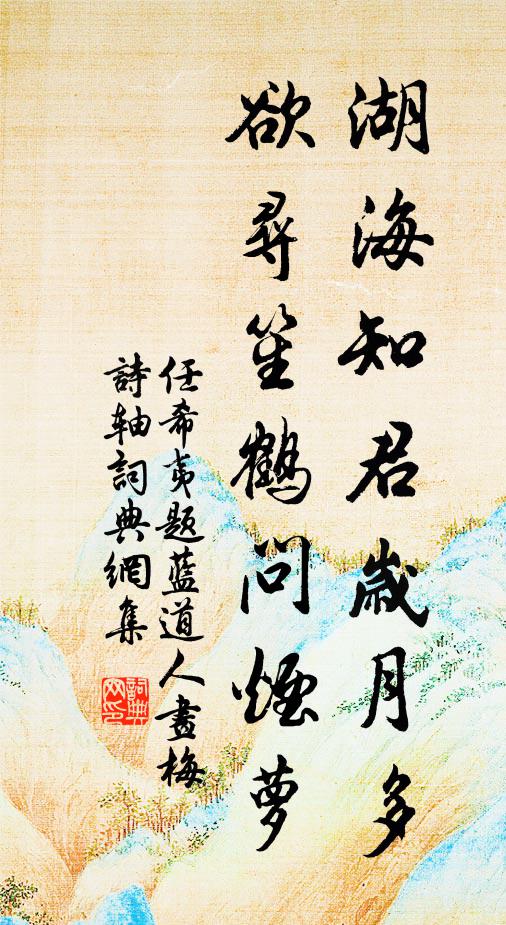 湖海知君歲月多
欲尋笙鶴問煙夢
任希夷題藍道人畫梅
詩軸詞典網集
詞典網印